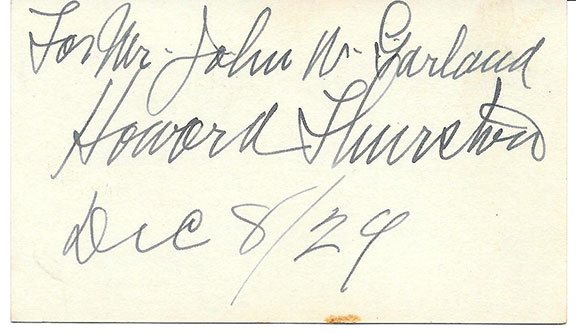 For Mr. John W. Garland
Howard Thurston
Dec 8/29